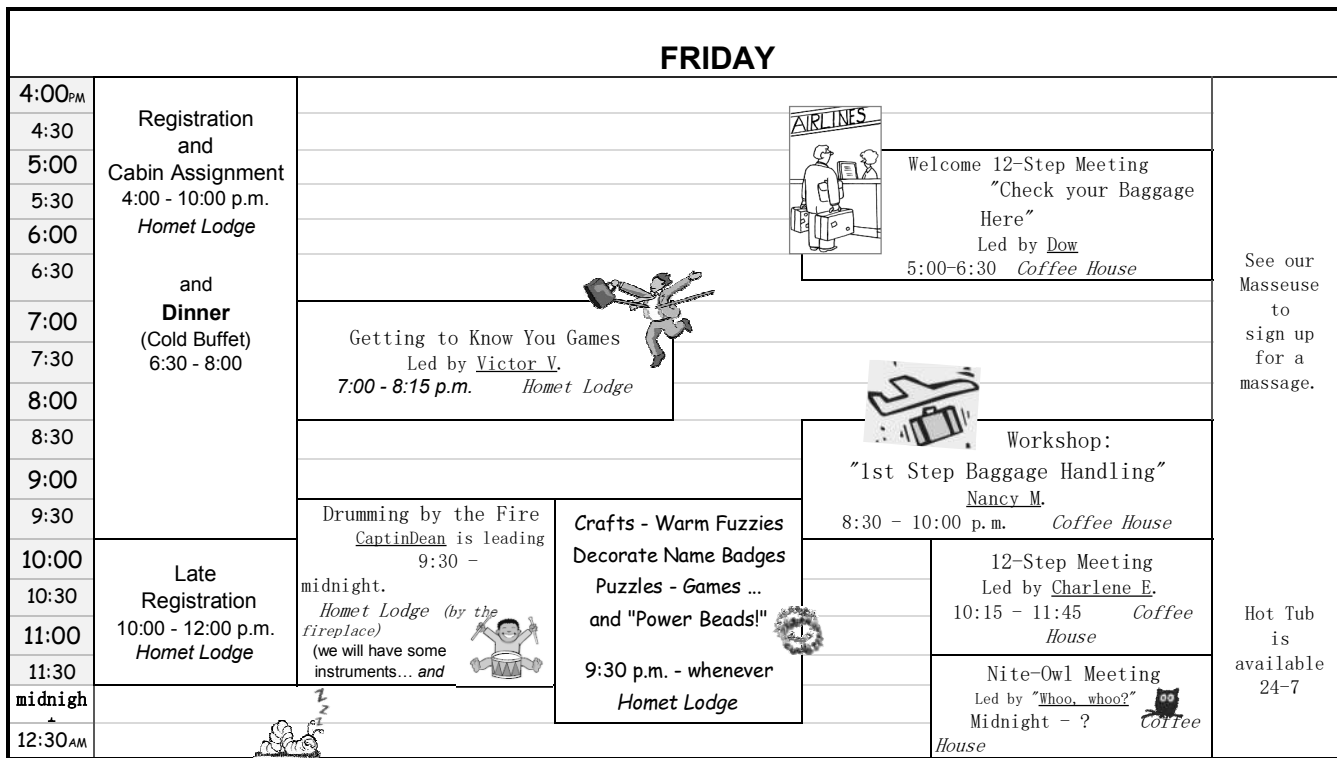 FRIDAY
4:00PM
4:30
5:00
5:30
6:00
6:30
7:00
7:30
8:00
8:30
9:00
9:30
10:00
10:30
11:00
11:30
midnigh
12:30AM
Registration
and
Cabin Assignment
4:00 - 10:00 p.m.
Homet Lodge
and
Dinner
(Cold Buffet)
6:30 - 8:00
Late
Registration
10:00 - 12:00 p.m.
Homet Lodge
AIRLINES
Welcome 12-Step Meeting
"Check your Baggage
Here"
Led by Dow
5:00-6:30 Coffee House
Getting to Know You Games
Led by Victor V.
7:00 - 8:15 p.m. Homet Lodge
Workshop:
"1st Step Baggage Handling"
Nancy M.
8:30 - 10:00 p.m. Coffee House
Drumming by the Fire
CaptinDean is leading
9:30 -
midnight.
Homet Lodge (by the
fireplace)
(we will have some
instruments… and
Crafts - Warm Fuzzies
Decorate Name Badges
Puzzles - Games ...
and "Power Beads!"
9:30 p.m. - whenever
Homet Lodge
12-Step Meeting
Led by Charlene E.
10:15 - 11:45 Coffee
House
Nite-Owl Meeting
Led by "Whoo, whoo?"
Midnight - ? Coffee
House
z
z
z
z
See our
Masseuse
to
sign up
for a
massage.
Hot Tub
is
available
24-7